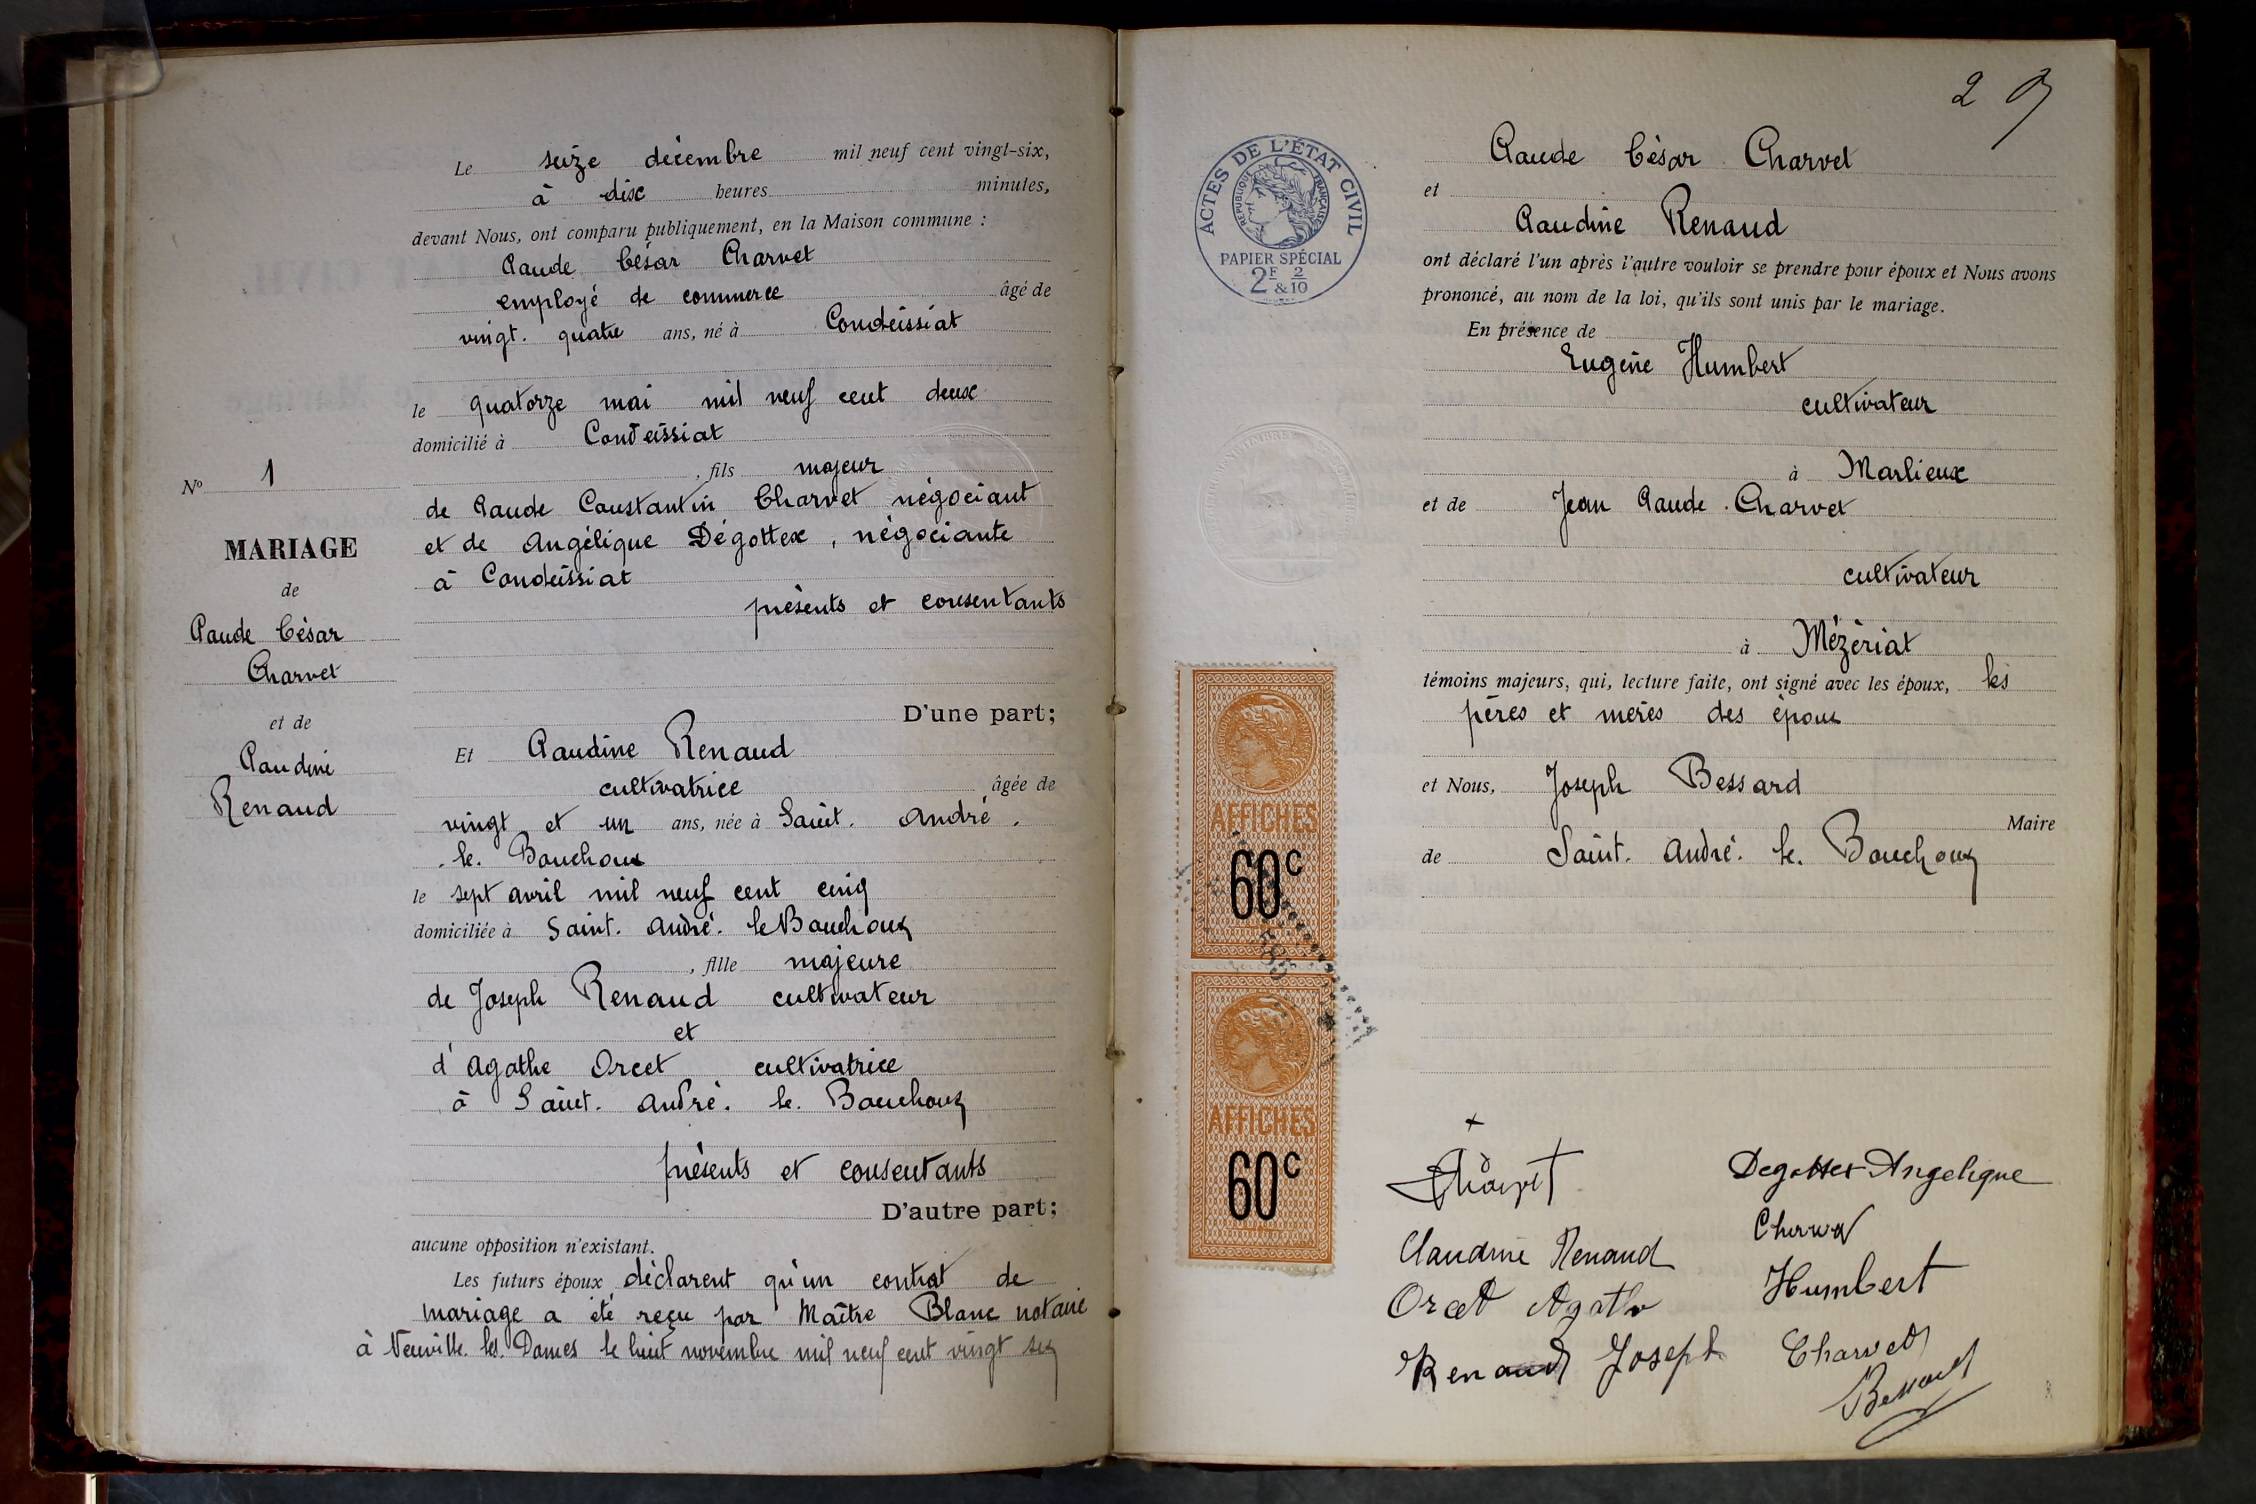 Le seize décembre mil neuf cent vingt-six,
à dix heures minutes,
devant Nous, ont comparu publiquement, en la Maison commune :
Claude César Charvet
employé de commerce âgé de
vingt. quatre ans, né à Condeissiat
le quatorze mai mil neuf cent deux
domicilié à Condeissiat
, fils majeur
de Claude Constantin Charvet négociant
et de Angélique Dégottex, négociante
à Condeissiat
présents et consentants
D'une part;
Nº 1
MARIAGE
de
Claude César
Charvet
et de
Claudine
Renaud
Et Claudine Renaud
cultivatrice âgée de
vingt et un ans, née à Saint. André.
le. Bouchoux
le sept avril mil neuf cent cinq
domiciliée à Saint. André. le Bouchoux
, fille majeure
de Joseph Renaud cultivateur
et
d'Agathe Orcet cultivatrice
à Saint. André. le. Bouchoux
présents et consentants
D'autre part;
aucune opposition n'existant.
Les futurs époux déclarent qu'un contrat de
mariage a été reçu par Maître Blanc notaire
à Neuville. les. Dames le huit novembre mil neuf cent vingt six
2
ACTES DE L'ÉTAT CIVIL
RÉPUBLIQUE FRANÇAISE
PAPIER SPÉCIAL
2F & 2/10
Claude César Charvet
et
Claudine Renaud
ont déclaré l'un après l'autre vouloir se prendre pour époux et Nous avons
prononcé, au nom de la loi, qu'ils sont unis par le mariage.
En présence de
Eugène Humbert
cultivateur
à Marlieux
et de Jean Claude Charvet
cultivateur
à Mézériat
témoins majeurs, qui, lecture faite, ont signé avec les époux, les
pères et mères des époux
et Nous, Joseph Bessard
Maire
de Saint. André. le. Bouchoux
AFFICHES
60c
AFFICHES
60c
Charvet
Degottex Angelique
Claudine Renaud
Charvet
Orcet Agathe
Humbert
Renaud Joseph
Charvet
Bessard